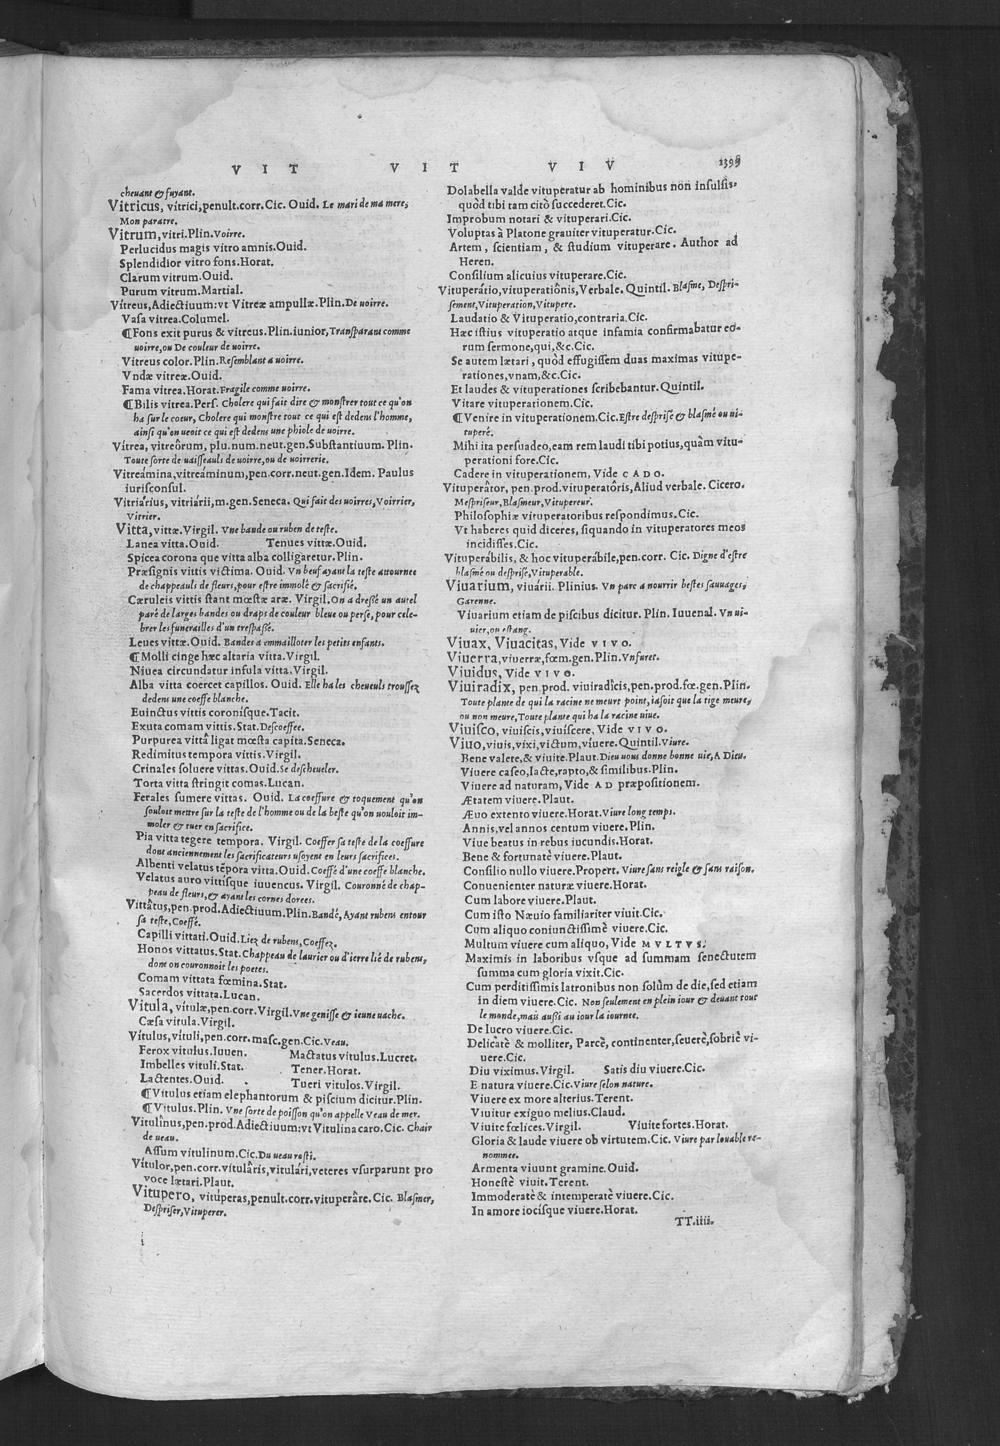 V I T V I T V I V 1399
cheuant & fuyant.
Vitricus, vitrici, penult. corr. Cic. Ouid. Le mari de ma mere,
Mon paratre.
Vitrum, vitri. Plin. Voirre.
Perlucidus magis vitro amnis. Ouid.
Splendidior vitro fons. Horat.
Clarum vitrum. Ouid.
Purum vitrum. Martial.
Vítreus, Adiectiuum: vt Vitreæ ampullæ. Plin. De uoirre.
Vasa vitrea. Columel.
¶ Fons exit purus & vitreus. Plin. iunior, Transparant comme
uoirre, ou De couleur de uoirre.
Vitreus color. Plin. Resemblant a uoirre.
Vndæ vitreæ. Ouid.
Fama vitrea. Horat. Fragile comme uoirre.
¶ Bilis vitrea. Pers. Cholere qui fait dire & monstrer tout ce qu'on
ha sur le coeur, Cholere qui monstre tout ce qui est dedens l'homme,
ainsi qu'on ueoit ce qui est dedens une phiole de uoirre.
Vítrea, vitreôrum, plu. num. neut. gen. Substantiuum. Plin.
Toute sorte de uaisseauls de uoirre, ou de uoirrerie.
Vitreámina, vitreáminum, pen. corr. neut. gen. Idem. Paulus
iurisconsul.
Vitriárius, vitriárii, m. gen. Seneca. Qui fait des uoirres, Voirrier,
Vitrier.
Vitta, vittæ. Virgil. Vne bande ou ruben de teste.
Lanea vitta. Ouid. Tenues vittæ. Ouid.
Spicea corona que vitta alba colligaretur. Plin.
Præsignis vittis victima. Ouid. Vn beuf ayant la teste attournee
de chappeauls de fleurs, pour estre immolé & sacrifié.
Cæruleis vittis stant mœstæ aræ. Virgil. On a dressé un autel
paré de larges bandes ou draps de couleur bleue ou perse, pour cele-
brer les funerailles d'un trespassé.
Leues vittæ. Ouid. Bandes a emmailloter les petits enfants.
¶ Molli cinge hæc altaria vitta. Virgil.
Niuea circundatur infula vitta. Virgil.
Alba vitta coercet capillos. Ouid. Elle ha les cheueuls troussez
dedens une coeffe blanche.
Euinctus vittis coronisque. Tacit.
Exuta comam vittis. Stat. Descoeffee.
Purpurea vittâ ligat mœsta capita. Seneca.
Redimitus tempora vittis. Virgil.
Crinales soluere vittas. Ouid. Se descheueler.
Torta vitta stringit comas. Lucan.
Ferales sumere vittas. Ouid. La coeffure & toquement qu'on
souloit mettre sur la teste de l'homme ou de la beste qu'on uouloit im-
moler & tuer en sacrifice.
Pia vitta tegere tempora. Virgil. Coeffer sa teste de la coeffure
dont anciennement les sacrificateurs usoyent en leurs sacrifices.
Albenti velatus tẽpora vitta. Ouid. Coeffé d'une coeffe blanche.
Velatus auro vittisque iuuencus. Virgil. Couronné de chap-
peau de fleurs, & ayant les cornes dorees.
Vittâtus, pen. prod. Adiectiuum. Plin. Bandé, Ayant rubens entour
sa teste, Coeffé.
Capilli vittati. Ouid. Liez de rubens, Coeffez.
Honos vittatus. Stat. Chappeau de laurier ou d'ierre lié de rubens,
dont on couronnoit les poetes.
Comam vittata fœmina. Stat.
Sacerdos vittata. Lucan.
Vitula, vitulæ, pen. corr. Virgil. Vne genisse & ieune uache.
Cæsa vitula. Virgil.
Vítulus, vituli, pen. corr. masc. gen. Cic. Veau.
Ferox vitulus. Iuuen. Mactatus vitulus. Lucret.
Imbelles vituli. Stat. Tener. Horat.
Lactentes. Ouid. Tueri vitulos. Virgil.
¶ Vitulus etiam elephantorum & piscium dicitur. Plin.
¶ Vitulus. Plin. Vne sorte de poisson qu'on appelle Veau de mer.
Vitulînus, pen. prod. Adiectiuum: vt Vitulina caro. Cic. Chair
de ueau.
Assum vitulinum. Cic. Du ueau rosti.
Vítulor, pen. corr. vitulâris, vitulári, veteres vsurparunt pro
voce lætari. Plaut.
Vitupero, vitúperas, penult. corr. vituperâre. Cic. Blasmer,
Despriser, Vituperer.
Dolabella valde vituperatur ab hominibus non insulsis,
quòd tibi tam citò succederet. Cic.
Improbum notari & vituperari. Cic.
Voluptas à Platone grauiter vituperatur. Cic.
Artem, scientiam, & studium vituperare. Author ad
Heren.
Consilium alicuius vituperare. Cic.
Vituperátio, vituperatiônis, Verbale. Quintil. Blasme, Despri-
sement, Vituperation, Vitupere.
Laudatio & Vituperatio, contraria. Cic.
Hæc istius vituperatio atque infamia confirmabatur eo-
rum sermone, qui, &c. Cic.
Se autem lætari, quòd effugissem duas maximas vitupe-
rationes, vnam, &c. Cic.
Et laudes & vituperationes scribebantur. Quintil.
Vitare vituperationem. Cic.
¶ Venire in vituperationem. Cic. Estre desprisé & blasmé ou ui-
tuperé.
Mihi ita persuadeo, eam rem laudi tibi potius, quàm vitu-
perationi fore. Cic.
Cadere in vituperationem, Vide CADO.
Vituperâtor, pen. prod. vituperatôris, Aliud verbale. Cicero.
Mespriseur, Blasmeur, Vitupereur.
Philosophiæ vituperatoribus respondimus. Cic.
Vt haberes quid diceres, siquando in vituperatores meos
incidisses. Cic.
Vituperábilis, & hoc vituperábile, pen. corr. Cic. Digne d'estre
blasmé ou desprisé, Vituperable.
Viuarium, viuárii. Plinius. Vn parc a nourrir bestes sauuages,
Garenne.
Viuarium etiam de piscibus dicitur. Plin. Iuuenal. Vn ui-
uier, ou estang.
Viuax, Viuacitas, Vide VIVO.
Viuerra, viuerræ, fœm. gen. Plin. Vn furet.
Viuidus, Vide VIVO.
Viuiradix, pen. prod. viuiradîcis, pen. prod. fœ. gen. Plin.
Toute plante de qui la racine ne meurt point, iasoit que la tige meure,
ou non meure, Toute plante qui ha la racine uiue.
Viuisco, viuiscis, viuiscere, Vide VIVO.
Viuo, viuis, vixi, victum, viuere. Quintil. Viure.
Bene valete, & viuite. Plaut. Dieu uous donne bonne uie, A Dieu.
Viuere caseo, lacte, rapto, & similibus. Plin.
Viuere ad naturam, Vide AD præpositionem.
Ætatem viuere. Plaut.
Æuo extento viuere. Horat. Viure long temps.
Annis, vel annos centum viuere. Plin.
Viue beatus in rebus iucundis. Horat.
Bene & fortunatè viuere. Plaut.
Consilio nullo viuere. Propert. Viure sans reigle & sans raison.
Conuenienter naturæ viuere. Horat.
Cum labore viuere. Plaut.
Cum isto Næuio familiariter viuit. Cic.
Cum aliquo coniunctissimè viuere. Cic.
Multum viuere cum aliquo, Vide MVLTVS.
Maximis in laboribus vsque ad summam senectutem
summa cum gloria vixit. Cic.
Cum perditissimis latronibus non solùm de die, sed etiam
in diem viuere. Cic. Non seulement en plein iour & deuant tout
le monde, mais aussi au iour la iournee.
De lucro viuere. Cic.
Delicatè & molliter, Parcè, continenter, seuerè, sobriè vi-
uere. Cic.
Diu viximus. Virgil. Satis diu viuere. Cic.
E natura viuere. Cic. Viure selon nature.
Viuere ex more alterius. Terent.
Viuitur exiguo melius. Claud.
Viuite fœlices. Virgil. Viuite fortes. Horat.
Gloria & laude viuere ob virtutem. Cic. Viure par louable re-
nommee.
Armenta viuunt gramine. Ouid.
Honestè viuit. Terent.
Immoderatè & intemperatè viuere. Cic.
In amore iocisque viuere. Horat.
TT.iiii.